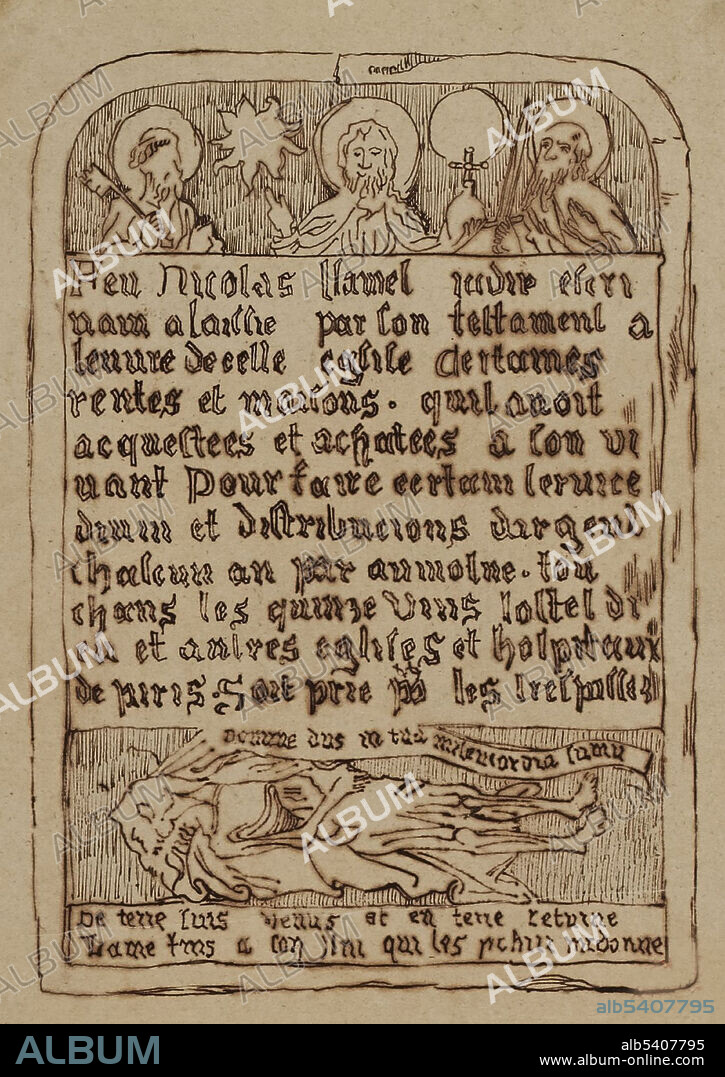 Feu Nicolas flamel jadis escri
uain a laissie par son testament a
leuure de celle eglise Certaines
rentes et maisons. quil auoit
acquestees et achatees a son vi
uant Pour faire certain seruice
diuin et distribucions dargent
chascun an par aumosne. tou
chans les quinze Vins lostel di
eu et autres eglises et hospitaux
de paris. Soit prie po les trespasses
domine dus in tua misericordia
De terre suis Venus et en terre retorne
Lame a toy qui les
ALBUM
alb5407795
ALBUM
alb5407795
www.album-online.com